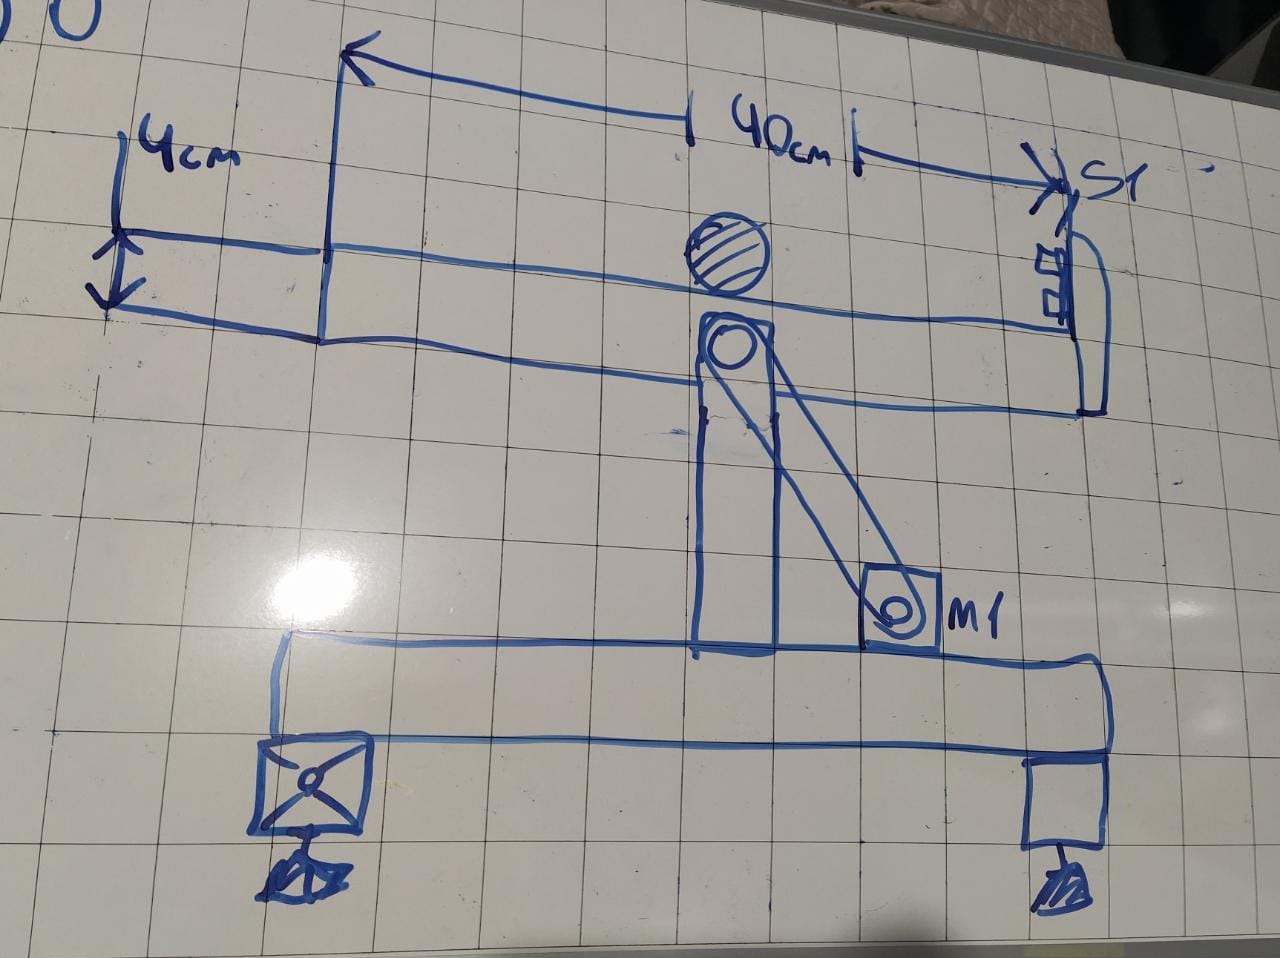 40cm
4cm
S1
M1